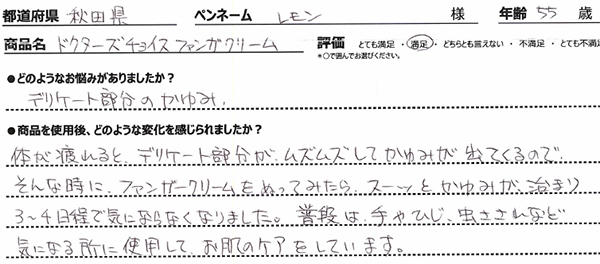 都道府県 秋田県 ペンネーム レモン 様 年齢 55 歳
商品名 ドクターズチョイスファンガクリーム 評価 とても満足 ・ 満足 ・ どちらとも言えない ・ 不満足 ・ とても不満
*○で囲んでお選びください。
●どのようなお悩みがありましたか？
デリケート部分のかゆみ.
●商品を使用後、どのような変化を感じられましたか？
体が疲れると、デリケート部分が、ムズムズしてかゆみが出てくるので、
そんな時に、ファンガークリームをぬってみたら、スーッとかゆみが、治まり
3～4日程で気にならなくなりました。普段は、手やひじ、虫さされなど
気になる所に使用して、お肌のケアをしています。